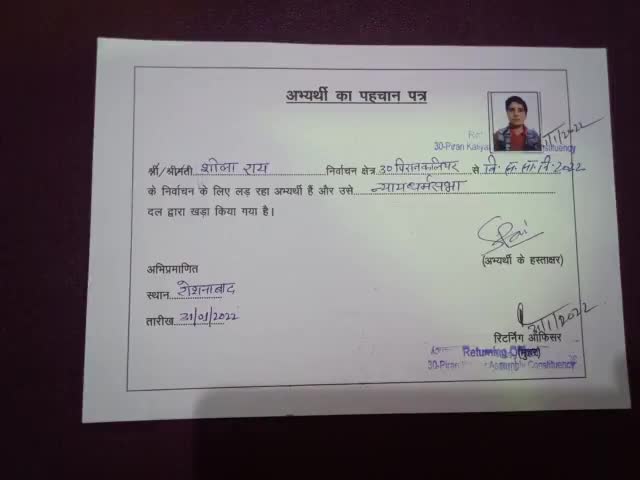 अभ्यर्थी का पहचान पत्र
31/1/2022
30-Piran Kaliyar
श्री/श्रीमती शोभा राय निर्वाचन क्षेत्र 30 पिरानकलियर से वि. स. सा. नि. 2022
के निर्वाचन के लिए लड़ रहा अभ्यर्थी हैं और उसे न्यायधर्मसभा
दल द्वारा खड़ा किया गया है।
SRai
(अभ्यर्थी के हस्ताक्षर)
अभिप्रमाणित
स्थान रोशनाबाद
तारीख 31/01/2022
31/1/2022
रिटर्निंग ऑफिसर
(मुहर)
Returning
30-Piran Assembly Constituency